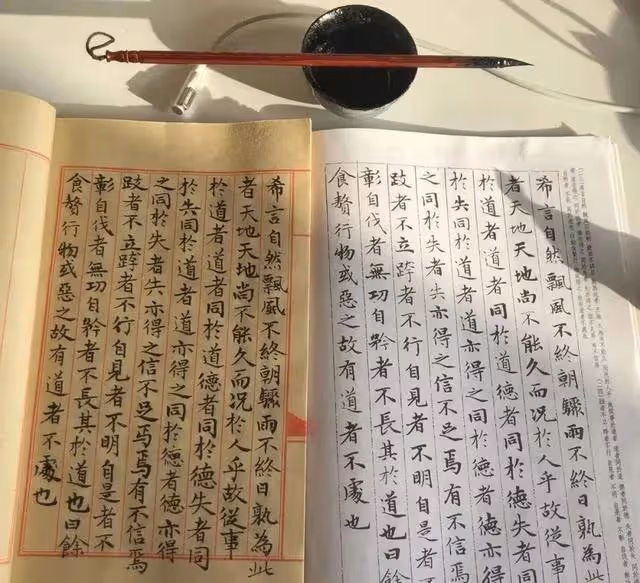 希言自然飄風不終朝驟雨不終日孰為此
者天地天地尚不能久而況於人乎故從事
於道者道者同於道德者同於德失者同
於失同於道者道亦得之同於德者德亦得
之同於失者失亦得之信不足焉焉有不信焉
跂者不立跨者不行自見者不明自是者不
彰自伐者無功自矜者不長其於道也曰餘
食贅行物或惡之故有道者不處也
希言自然飄風不終朝驟雨不終日孰為此
者天地天地尚不能久而況於人乎故從事
於道者道者同於道德者同於德失者同
於失同於道者道亦得之同於德者德亦得
之同於失者失亦得之信不足焉有不信焉
跂者不立跨者不行自見者不明自是者
彰自伐者無功自矜者不長其於道也曰餘
食贅行物或惡之故有道者不處也